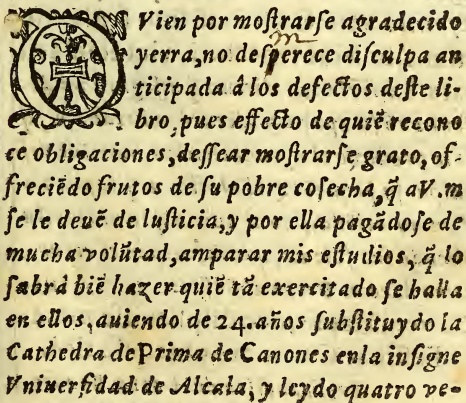 QVien por moſtrarſe agradecido
yerra, no deſperece diſculpa an
m
ticipada â los defectos deſte li-
bro, pues effecto de quiẽ recono
ce obligaciones, deſſear moſtrarſe grato, of-
freciẽdo frutos de ſu pobre coſecha, q̃ aV.m
ſe le deuẽ de Iuſticia, y por ella pagãdoſe de
mucha volũtad, amparar mis eſtudios, q̃ lo
ſabrà biẽ hazer quiẽ tã exercitado ſe halla
en ellos, auiendo de 24. años ſubſtituydo la
Cathedra de Prima de Canones enla inſigne
Vniuerſidad de Alcala, y leydo quatro ve-